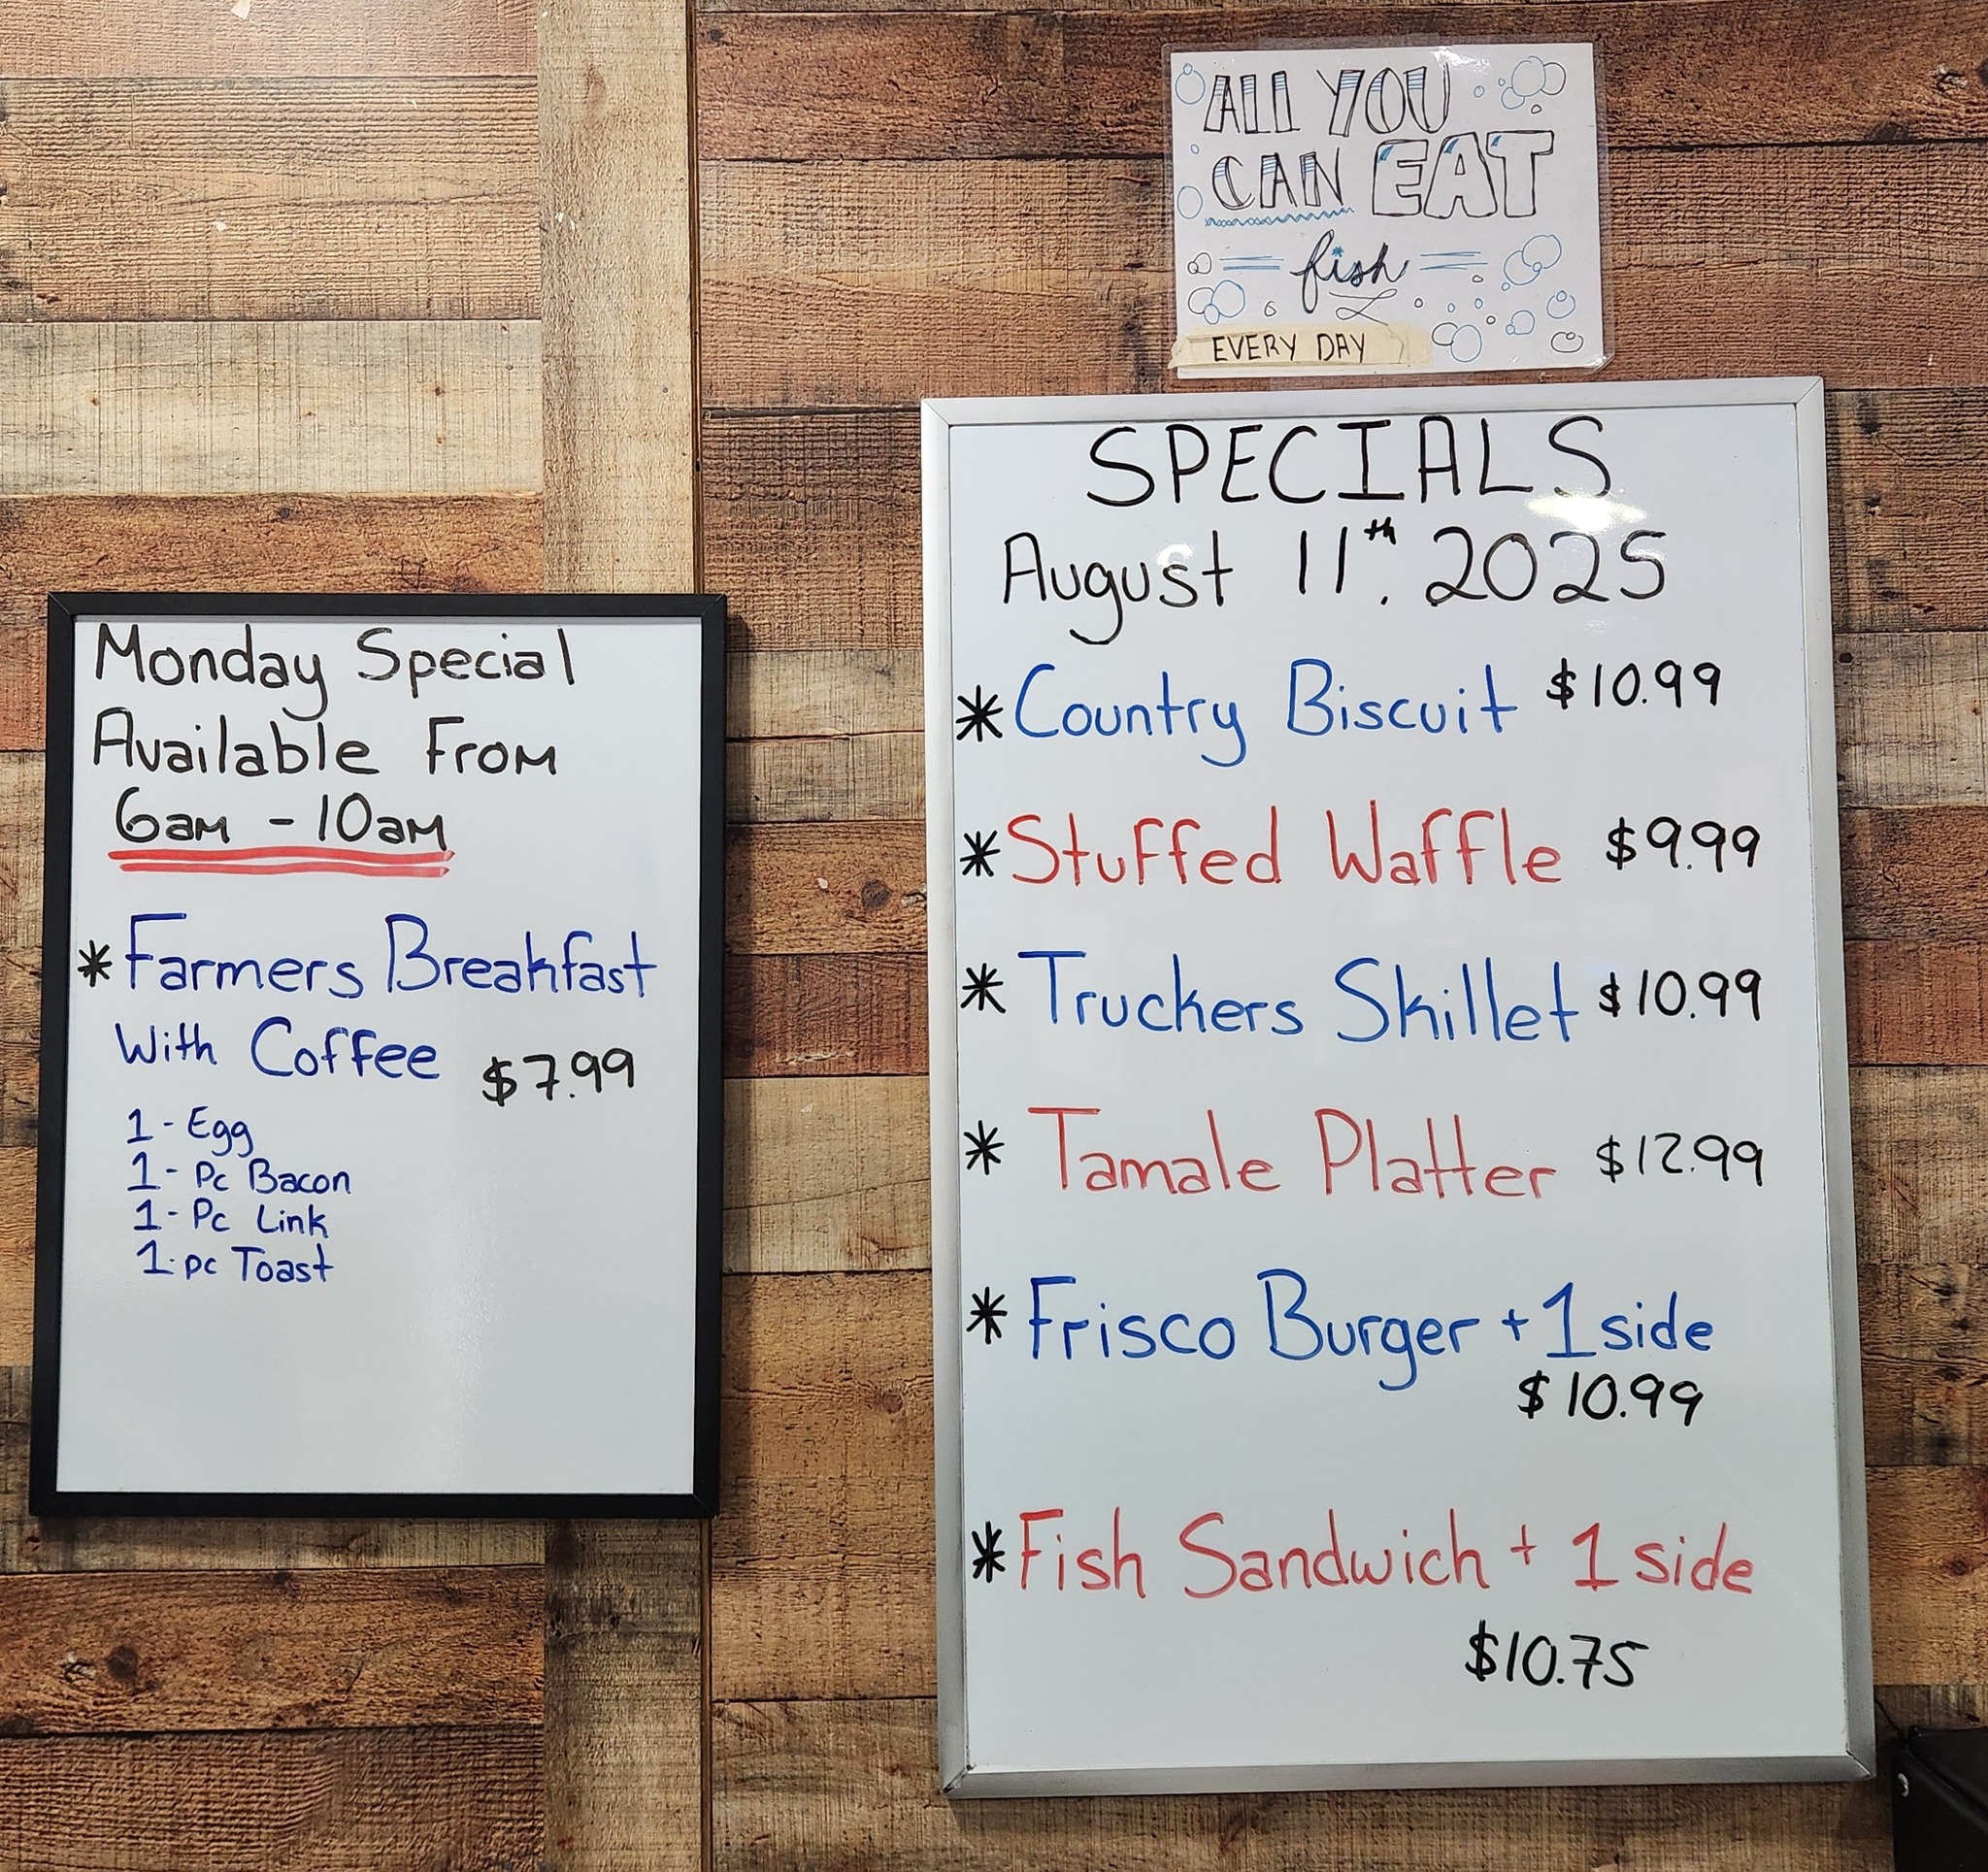 ALL YOU
CAN EAT
fish
EVERY DAY
Monday Special
Available From
6am - 10am
* Farmers Breakfast
With Coffee $7.99
1 - Egg
1 - Pc Bacon
1 - Pc Link
1 - pc Toast
SPECIALS
August 11th. 2025
* Country Biscuit $10.99
* Stuffed Waffle $9.99
* Truckers Skillet $10.99
* Tamale Platter $12.99
* Frisco Burger + 1 side
$10.99
* Fish Sandwich + 1 side
$10.75